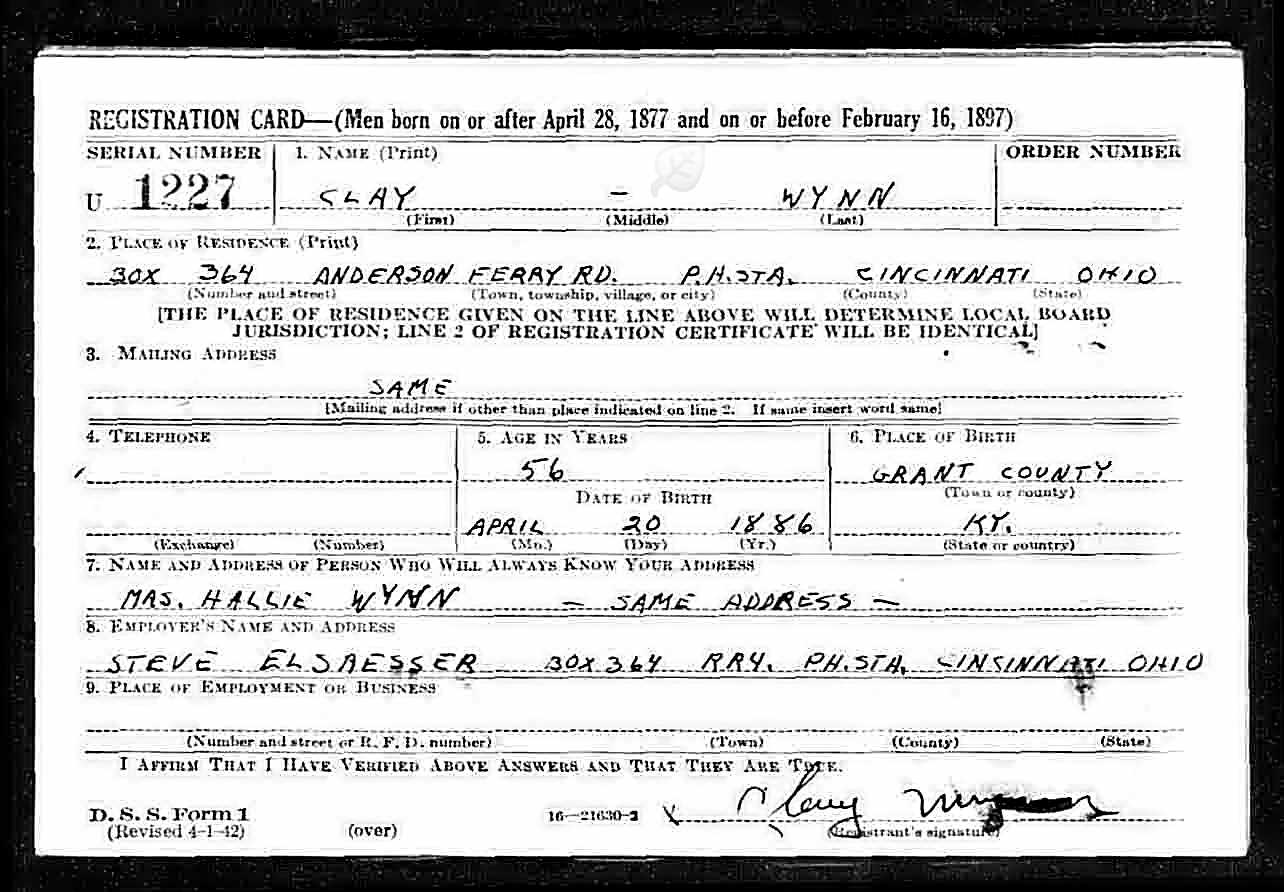 REGISTRATION CARD—(Men born on or after April 28, 1877 and on or before February 16, 1897)
SERIAL NUMBER 1. NAME (Print) ORDER NUMBER
U 1227 CLAY – WYNN
(First) (Middle) (Last)
2. PLACE OF RESIDENCE (Print)
BOX 364 ANDERSON FERRY RD. P.H.STA. CINCINNATI OHIO
(Number and street) (Town, township, village, or city) (County) (State)
[THE PLACE OF RESIDENCE GIVEN ON THE LINE ABOVE WILL DETERMINE LOCAL BOARD
JURISDICTION; LINE 2 OF REGISTRATION CERTIFICATE WILL BE IDENTICAL]
3. MAILING ADDRESS
SAME
[Mailing address if other than place indicated on line 2. If same insert word same]
4. TELEPHONE 5. AGE IN YEARS 6. PLACE OF BIRTH
56 GRANT COUNTY
DATE OF BIRTH (Town or county)
APRIL 20 1886 KY.
(Exchange) (Number) (Mo.) (Day) (Yr.) (State or country)
7. NAME AND ADDRESS OF PERSON WHO WILL ALWAYS KNOW YOUR ADDRESS
MRS. HALLIE WYNN — SAME ADDRESS —
8. EMPLOYER'S NAME AND ADDRESS
STEVE ELSAESSER BOX 364 RR4. P.H.STA. CINSINNATI OHIO
9. PLACE OF EMPLOYMENT OR BUSINESS
(Number and street or R. F. D. number) (Town) (County) (State)
I AFFIRM THAT I HAVE VERIFIED ABOVE ANSWERS AND THAT THEY ARE TRUE.
D. S. S. Form 1 16—21630-2 X Clay
(Revised 4-1-42) (over) (Registrant's signature)